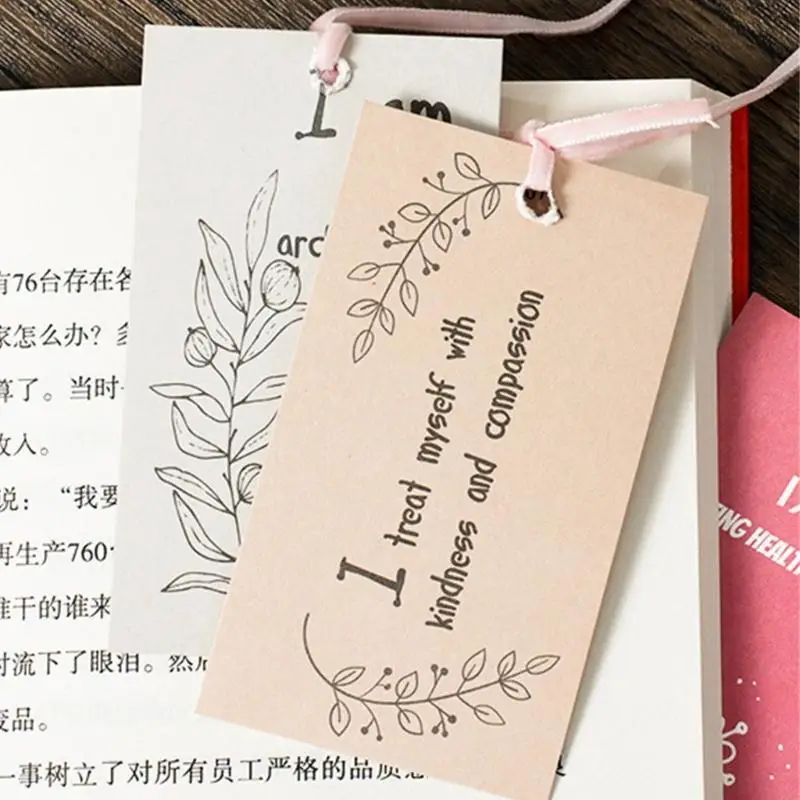 I am
I treat myself with
kindness and compassion
有76台存在各
家怎么办？多
算了。当时
收入。
说：“我要
再生产760
准干的谁来
时流下了眼泪。然后
废品。
一事树立了对所有员工严格的品质意
ING HEALTH